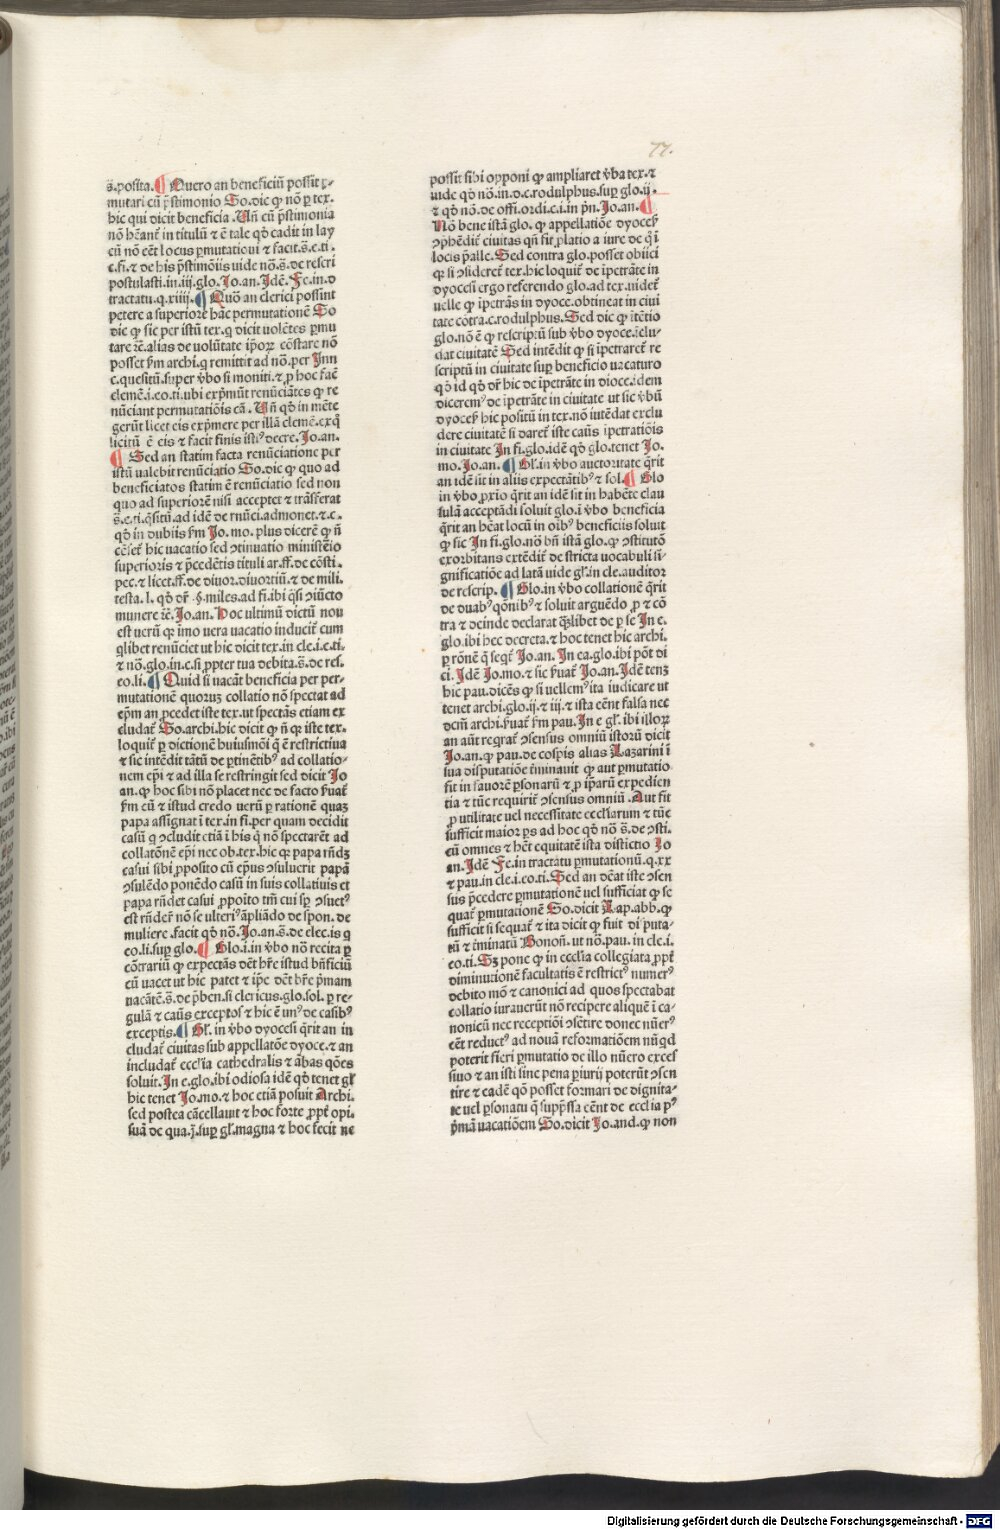 77.
s̄.posita.¶ Quero an beneficiū possit ꝑ-
mutari cū p̄stimonio So.dic ꝙ nō ꝑ tex.
hic qui dicit beneficia .Uñ cū p̄stimonia
nō hēant̄ in titulū ⁊ ē tale qd̄ cadit in lay
cū nō eēt locus ꝑmutatioui ⁊ facit.s̄.e.ti.
c.fi.⁊ de his p̄stimōiis uide nō.s̄.de rescri
postulasti.in.iij.glo.Jo.an.Jdē. Fe.in.d
tractatu.q.xiiij.¶ Quō an clerici possint
petere a superiore hāc permutationē So
dic ꝙ sic per istū tex.q dicit uolētes ꝑmu
tare ⁊c̄.alias de uolūtate ip̄oꝝ cōstare nō
posset ẜm archi.q remittit ad nō.per Jnn
c.quesitū.super ꝟbo si moniti.⁊ ꝓ hoc fac̄
elemē.i.eo.ti.ubi exprimūt renūciātes ꝙ re
nūciant permutatiōis cā. Uñ qd̄ in mēte
gerūt licet eis exprimere per illā clemē.exq̄
licitū ē eis ⁊ facit finis isti⁹ decre.Jo.an.
¶ Sed an statim facta renūciatione per
istū ualebit renūciatio So.dic ꝙ quo ad
beneficiatos statim ē renūciatio sed non
quo ad superiorē nisi acceptet ⁊ trāsferat
s̄.e.ti.q̄situ.ad idē de rnūci.admonet.⁊.c.
qd̄ in dubiis ẜm Jo.mo.plus dicerē ꝙ ñ
cēset̄ hic uacatio sed ↄtinuatio ministēio
superioris ⁊ p̄cedētis tituli ar.ff.de cōsti.
pec.⁊ licet.ff.de diuor.diuortiū.⁊ de mili.
testa.l.qd̄ dr̄ .§.miles.ad fi.ibi q̄si ↄiūcto
munere ⁊c̄.Jo.an. Hoc ultimū dictū non
est uerū ꝙ īmo uera uacatio inducit̄ cum
qlibet renūciet ut hic dicit tex.in cle.i.e.ti.
⁊ nō.glo.in.c.si ꝓpter tua debita.s̄.de res.
eo.li.¶ Quid si uacāt beneficia per per-
mutationē quorum collatio nō spectat ad
ep̄m an ꝓcedet iste tex.ut spectās etiam ex
cludat̄ So.archi.hic dicit ꝙ ñ ꝙ iste tex.
loquit̄ ꝑ dictionē huiusmōi q ē restrictiua
⁊ sic intēdit tātū de ꝑtinētib⁹ ad collatio-
nem ep̄i ⁊ ad illa se restringit sed dicit Jo
an.ꝙ hoc sibi nō placet nec de facto ẜuat̄
ẜm eū ⁊ istud credo uerū ꝑ rationē quam
papa assignat ī tex.in fi.per quam decidit
casū q ↄcludit etiā ī his q̄ nō spectarēt ad
collatōnē ep̄i nec ob.tex.hic qꝛ papa rn̄dꝫ
casui sibi ꝓposito cū ep̄us ↄsuluerit papā
ↄsulēdo ponēdo casū in suis collatiuis et
papa rn̄det casui ꝓpoito tm̄ cui sꝑ ↄsuet⁹
est rn̄der̄ nō se ulteri⁹ āpliādo de spon. de
muliere.facit qd̄ nō.Jo.an.s̄.de elec.is q
eo.li.suꝑ glo.¶ Glo.i.in ꝟbo nō recita ꝑ
cōtrariū ꝙ expectās dēt hr̄e istud bn̄ficiū
cū uacet ut hic patet ⁊ ip̄e dēt hr̄e p̄mam
uacātē.s̄.de p̄ben.si clericus.glo.sol.ꝑ re-
gulā ⁊ cauſs exceptos ⁊ hic ē un⁹ de casib⁹
exceptis.¶ Gl̄.in ꝟbo dyocesi q̄rit an in
cludat̄ ciuitas sub appellatōe dyoce.⁊ an
includat̄ eccl̄ia cathedralis ⁊ ābas qōes
soluit.Jn e.glo.ibi odiosa idē qd̄ tenet gl̄
hic tenet Jo.mo.⁊ hoc etiā posuit Archi.
sed postea cācellauit ⁊ hoc forte ꝓpt̄ opi.
suā de qua.j̄.suꝑ gl̄.magna ⁊ hoc fecit ne
possit sibi opponi ꝙ ampliaret ꝟba tex.⁊
uide qd̄ nō.in.d.c.rodulphus.suꝑ glo.ij.
⁊ qd̄ nō.de offi.ordi.c.i.in pn̄.Jo.an.¶
Nō bene istā glo.ꝙ appellatiōe dyocesꝭ
ↄphēdit̄ ciuitas qn̄ fit ꝓlatio a iure de q̄ ī
locis p̄alle.Sed contra glo.posset obiici
ꝙ si ↄsideret̄ tex.hic loquit̄ de īpetrāte in
dyocesi ergo referendo glo.ad tex.uidet̄
uelle ꝙ īpetrās in dyoce.obtineat in ciui
tate cōtra.c.rodulphus.Sed dic ꝙ ītētio
glo.nō ē ꝙ rescriptū sub ꝟbo dyoce.īclu-
dat ciuitatē Sed intēdit ꝙ si īpetraret̄ re
scriptū in ciuitate suꝑ beneficio uacaturo
qd̄ id qd̄ dr̄ hic de īpetrāte in dioce.idem
dicerem⁹ de īpetrāte in ciuitate ut sic ꝟbū
dyocesꝭ hic positū in tex.nō intēdat exclu
dere ciuitatē si daret̄ iste caūs īpetratiōis
in ciuitate Jn fi.glo.idē qd̄ glo.tenet Jo.
mo.Jo.an.¶ Gl̄.in ꝟbo auctoritate q̄rit
an idē sit in aliis expectātib⁹ ⁊ sol.¶ Glo
in ꝟbo ꝓxio q̄rit an idē sit in habēte clau
sulā acceptādi soluit glo.ī ꝟbo beneficia
q̄rit an hēat locū in oib⁹ beneficiis soluit
ꝙ sic Jn fi.glo.nō bn̄ istā glo.ꝙ ↄstitutō
exorbitans extēdit̄ de stricta uocabuli si-
gnificatiōe ad latā uide gl̄.in cle.auditor
de rescrip.¶ Glo.in ꝟbo collationē q̄rit
de duab⁹ qōnib⁹ ⁊ soluit arguēdo ꝓ ⁊ cō
tra ⁊ deinde declarat qꝫlibet de ꝑ se Jn e.
glo.ibi hec decreta.⁊ hoc tenet hic archi.
ꝑ rōnē q̄ seqt̄ Jo.an. Jn ea.glo.ibi pōt di
ci.Jdē Jo.mo.⁊ sic ẜuat̄ Jo.an.Jdē tenꝫ
hic pau.dicēs ꝙ si uellem⁹ ita iudicare ut
tenet archi.glo.ij.⁊ iij.⁊ ista eēnt falsa nec
dcm̄ archi.ẜuat̄ ẜm pau.Jn e gl̄.ibi illoꝝ
an aūt reqrat̄ ↄsensus omniū istorū dicit
Jo.an.ꝙ pau.de cospis alias Lazarini ī
sua disputatiōe t̄minauit ꝙ aut ꝑmutatio
fit in fauorē ꝑsonarū ⁊ ꝓ ip̄arū expedien
tia ⁊ tūc requirit̄ ↄsensus omniū .Aut fit
ꝓ utilitate uel necessitate eccl̄iarum ⁊ tūc
sufficit maior ꝑs ad hoc qd̄ nō.s̄.de ↄsti.
cū omnes ⁊ hēt equitatē ista distictio Jo
an.Jdē Fe.in tractatu ꝑmutationū.q.xx
⁊ pau.in cle.i.eo.ti.Sed an dēat iste ↄsen
sus p̄cedere ꝑmutationē uel sufficiat ꝙ se
quat̄ ꝑmutationē So.dicit Lap.abb.ꝙ
sufficit si sequat̄ ⁊ ita dicit ꝙ fuit di puta-
tū ⁊ t̄minatū Bonoñ.ut nō.pau.in cle.i.
eo.ti.Sꝫ pone ꝙ in eccl̄ia collegiata ꝓpt̄
diminutionē facultatis ē restrict⁹ numer⁹
debito mō ⁊ canonici ad quos spectabat
collatio iurauerūt nō recipere aliquē ī ca-
nonicū nec receptiōi ↄsētire donec nūer⁹
eēt reduct⁹ ad nouā reformatiōem nūqd
poterit fieri ꝑmutatio de illo nūero exces
siuo ⁊ an isti sine pena ꝑiurij poterūt ↄsen
tire ⁊ eadē qō posset formari de dignita-
te uel ꝑsonatu q̄ supp̄ssa eēnt de ecclia p⁹
p̄mā uacatiōem So.dicit Jo.and.ꝙ non
Digitalisierung gefördert durch die Deutsche Forschungsgemeinschaft - DFG